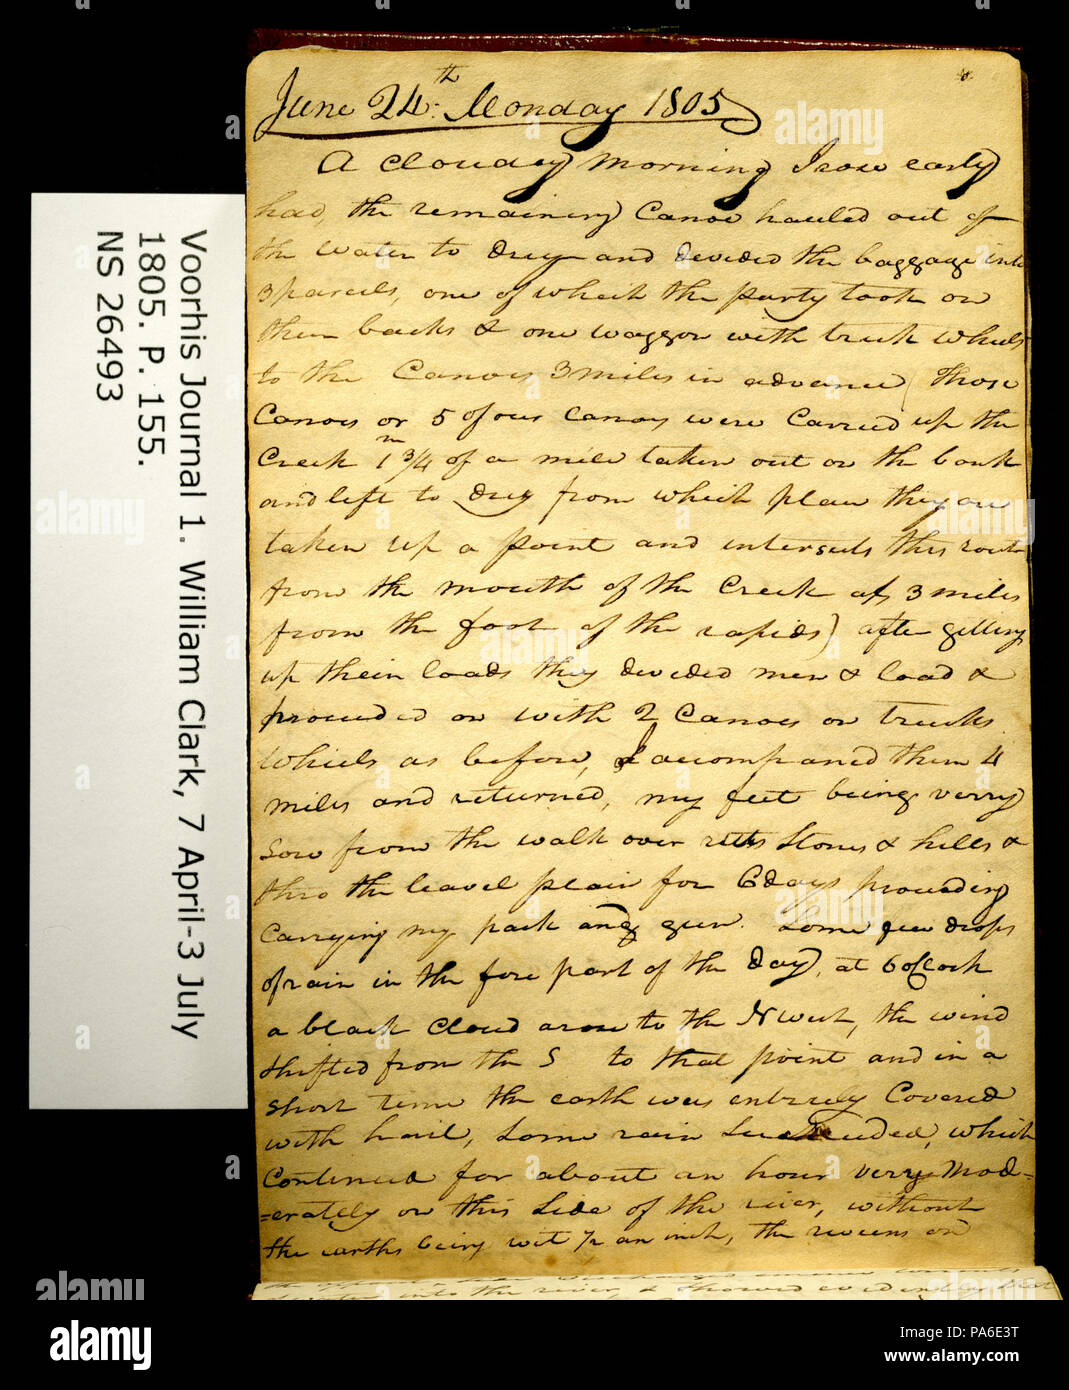 June 24th Monday 1805
A Cloudey morning I rose early
had, the remaining Canoe hauled out of
the water to drey and devided the baggage into
3 parcels, one of which the party took on
their backs & one waggon with truk wheels
to the Canoes 3 miles in advance (those
Canoes or 5 of our Canoes were Carried up the
Creek 1 3/4 of a mile taken out on the bank
and left to drey from which place they are
taken up a point and intersects this rout
from the mouth of the Creek at 3 miles
from the foot of the rapids) after getting
up their loads they devided men & load &
proceeded on with 2 Canoes on truck
wheels as before, I accompaned them 4
miles and returned, my feet being verry
Sore from the walk over ruts Stones & hills &
thro the leavel plain for 6 days proceeding
Carrying my pack and gun. Some few drops
of rain in the fore part of the day, at 6 oClock
a black Cloud arose to the N West, the wind
shifted from the S to that point and in a
Short time the earth was entirely Covered
with hail, Some rain Succeeded, which
Continued for about an hour very Mod-
=erately on this Side of the river, without
the earths being wet 1/2 an inch, the riveens on
Voorhis Journal 1. William Clark, 7 April-3 July
1805. P. 155.
NS 26493
alamy
a
PA6E3T
www.alamy.com